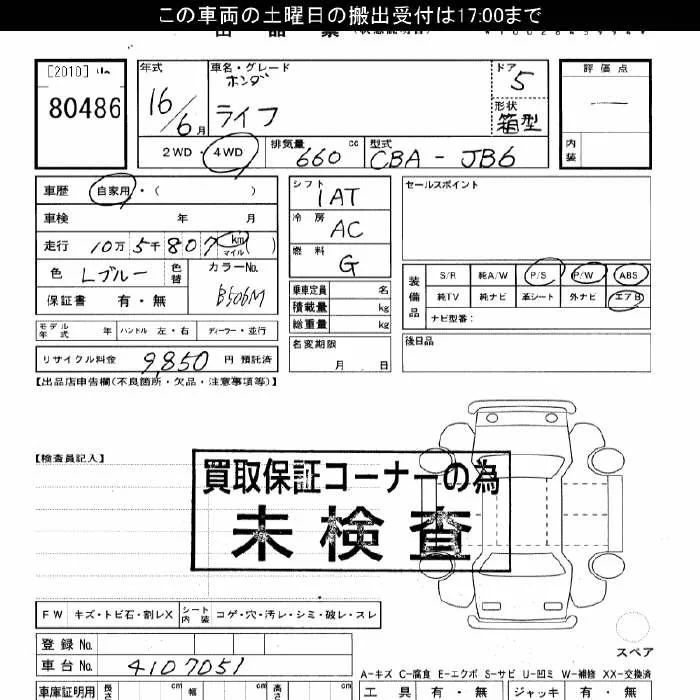 この車両の土曜日の搬出受付は17:00まで
[2010]
80486
年式
16/6月
車名・グレード
ホンダ
ライフ
ドア
5
形状
箱型
評価点
―
内装
2WD・4WD
排気量
660 cc
型式
CBA - JB6
車歴 自家用・( )
車検 年 月
走行 10万5千807 km マイル ( )
色 Lブルー 色替
カラーNo.
B506M
保証書 有・無
シフト
IAT
冷房
AC
燃料
G
乗車定員 名
積載量 kg
総重量 kg
名変期限
月 日
セールスポイント
装備品
S/R 純A/W P/S P/W ABS
純TV 純ナビ 革シート 外ナビ エアB
ナビ型番:
後日品
モデル年式 年 ハンドル 左・右 ディーラー・並行
リサイクル料金 9,850 円 預託済
【出品店申告欄(不良箇所・欠品・注意事項等)】
【検査員記入】
買取保証コーナーの為
未検査
FW キズ・トビ石・割レX シート内装 コゲ・穴・汚レ・シミ・破レ・スレ
登録No.
車台No. 4107051
スペア
A-キズ C-腐食 E-エクボ S-サビ U-凹ミ W-補修 XX-交換済
車庫証明用 長さ cm 幅 cm 高さ cm
工具 有・無 ジャッキ 有・無